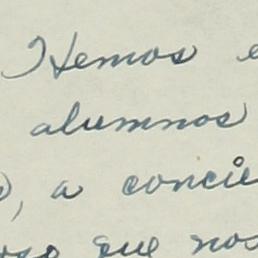 Hemos e
alumnos
), a concie
oso que nos